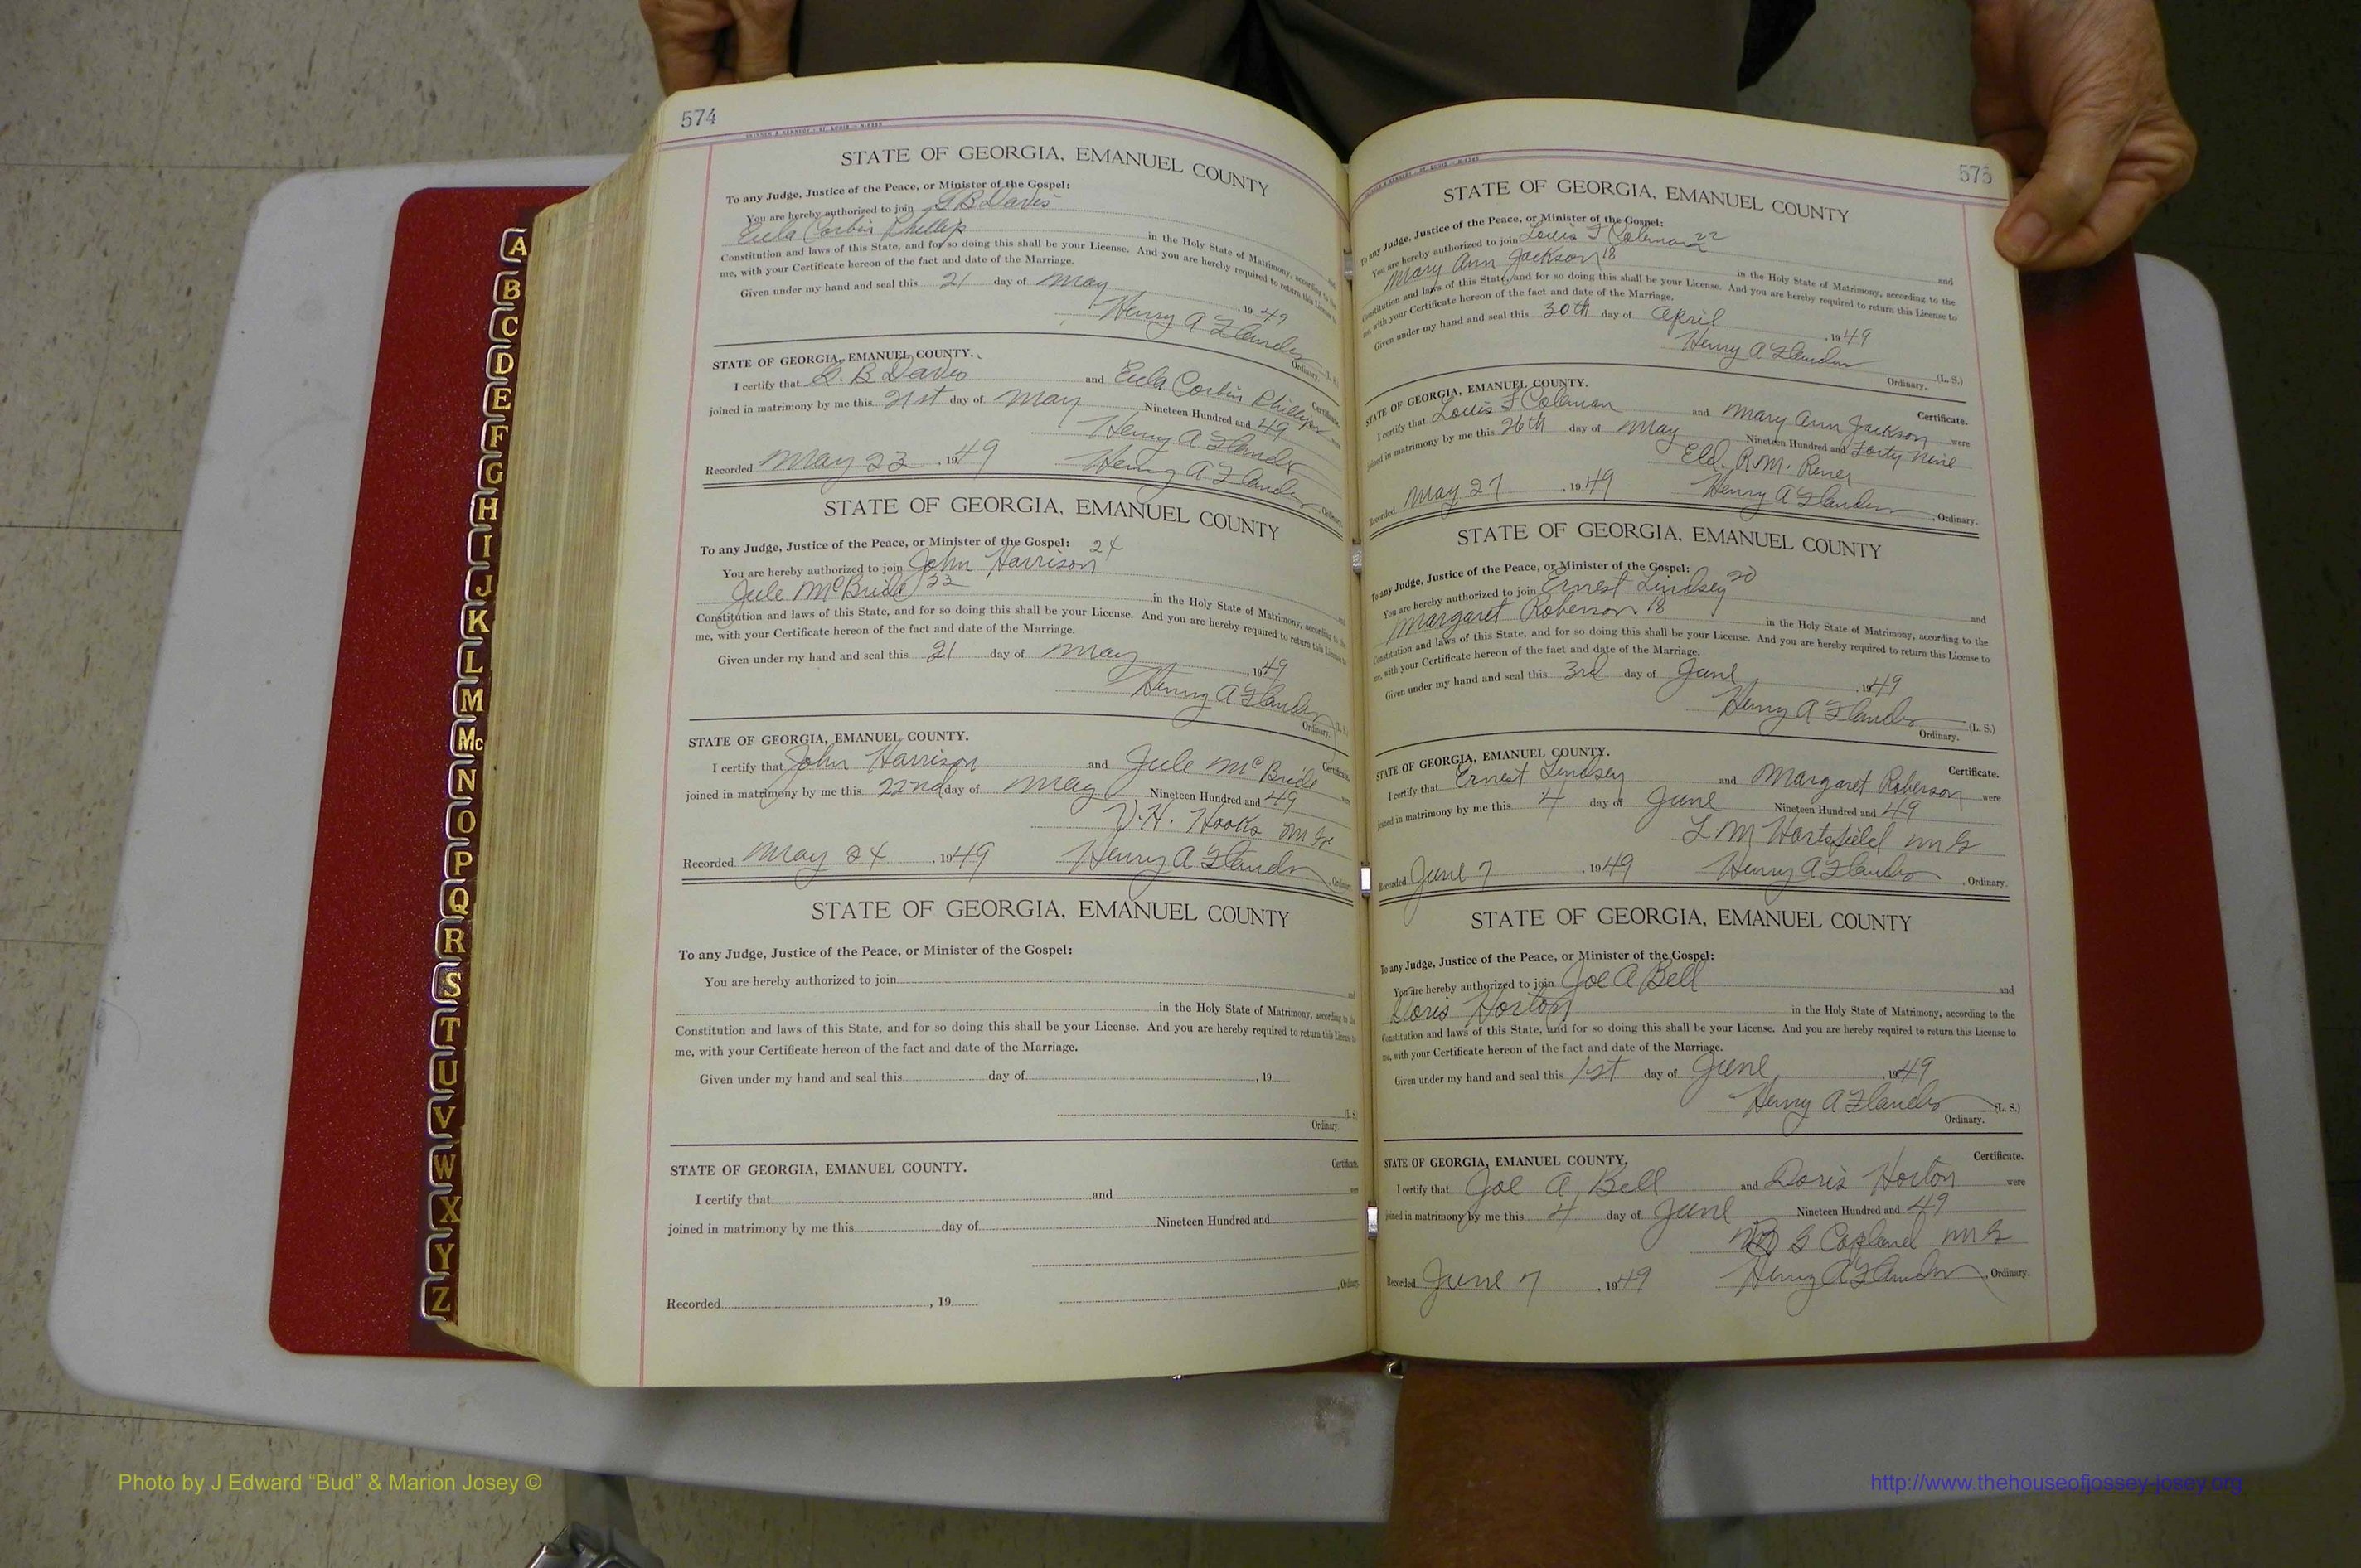 574
STATE OF GEORGIA, EMANUEL COUNTY
To any Judge, Justice of the Peace, or Minister of the Gospel:
You are hereby authorized to join G B Davis
Eula Corbin Phillips in the Holy State of Matrimony, according to the
Constitution and laws of this State, and for so doing this shall be your License. And you are hereby required to return this License to
me, with your Certificate hereon of the fact and date of the Marriage.
Given under my hand and seal this 21 day of May, 1949
Henry A Flanders (L. S.)
Ordinary.
STATE OF GEORGIA, EMANUEL COUNTY. Certificate.
I certify that G. B Davis and Eula Corbin Phillips were
joined in matrimony by me this 21st day of May Nineteen Hundred and 49
Henry A Flanders
Recorded May 23, 1949 Henry A Flanders, Ordinary.
STATE OF GEORGIA, EMANUEL COUNTY
To any Judge, Justice of the Peace, or Minister of the Gospel:
You are hereby authorized to join John Harrison 24 and
Jule McBride 22 in the Holy State of Matrimony, according to the
Constitution and laws of this State, and for so doing this shall be your License. And you are hereby required to return this License to
me, with your Certificate hereon of the fact and date of the Marriage.
Given under my hand and seal this 21 day of May, 1949
Henry A Flanders (L. S.)
Ordinary.
STATE OF GEORGIA, EMANUEL COUNTY. Certificate.
I certify that John Harrison and Jule McBride were
joined in matrimony by me this 22nd day of May Nineteen Hundred and 49
V. H. Hooks M G
Recorded May 24, 1949 Henry A Flanders, Ordinary.
STATE OF GEORGIA, EMANUEL COUNTY
To any Judge, Justice of the Peace, or Minister of the Gospel:
You are hereby authorized to join and
in the Holy State of Matrimony, according to the
Constitution and laws of this State, and for so doing this shall be your License. And you are hereby required to return this License to
me, with your Certificate hereon of the fact and date of the Marriage.
Given under my hand and seal this day of , 19
(L. S.)
Ordinary.
STATE OF GEORGIA, EMANUEL COUNTY. Certificate.
I certify that and were
joined in matrimony by me this day of Nineteen Hundred and
Recorded , 19 , Ordinary.
575
STATE OF GEORGIA, EMANUEL COUNTY
To any Judge, Justice of the Peace, or Minister of the Gospel:
You are hereby authorized to join Louis F Coleman 22 and
Mary Ann Jackson 18 in the Holy State of Matrimony, according to the
Constitution and laws of this State, and for so doing this shall be your License. And you are hereby required to return this License to
me, with your Certificate hereon of the fact and date of the Marriage.
Given under my hand and seal this 30th day of April, 1949
Henry A Flanders (L. S.)
Ordinary.
STATE OF GEORGIA, EMANUEL COUNTY. Certificate.
I certify that Louis F Coleman and Mary Ann Jackson were
joined in matrimony by me this 26th day of May Nineteen Hundred and Forty Nine
Eld. R. M. Riner
Recorded May 27, 1949 Henry A Flanders, Ordinary.
STATE OF GEORGIA, EMANUEL COUNTY
To any Judge, Justice of the Peace, or Minister of the Gospel:
You are hereby authorized to join Ernest Lindsey 20 and
Margaret Roberson 18 in the Holy State of Matrimony, according to the
Constitution and laws of this State, and for so doing this shall be your License. And you are hereby required to return this License to
me, with your Certificate hereon of the fact and date of the Marriage.
Given under my hand and seal this 3rd day of June, 1949
Henry A Flanders (L. S.)
Ordinary.
STATE OF GEORGIA, EMANUEL COUNTY. Certificate.
I certify that Ernest Lindsey and Margaret Roberson were
joined in matrimony by me this 4 day of June Nineteen Hundred and 49
L. M Hartsfield M G
Recorded June 7, 1949 Henry A Flanders, Ordinary.
STATE OF GEORGIA, EMANUEL COUNTY
To any Judge, Justice of the Peace, or Minister of the Gospel:
You are hereby authorized to join Joe A Bell and
Doris Horton in the Holy State of Matrimony, according to the
Constitution and laws of this State, and for so doing this shall be your License. And you are hereby required to return this License to
me, with your Certificate hereon of the fact and date of the Marriage.
Given under my hand and seal this 1st day of June, 1949
Henry A Flanders (L. S.)
Ordinary.
STATE OF GEORGIA, EMANUEL COUNTY. Certificate.
I certify that Joe A, Bell and Doris Horton were
joined in matrimony by me this 4 day of June Nineteen Hundred and 49
G Copland M G
Recorded June 7, 1949 Henry A Flanders, Ordinary.
A
B
C
D
E
F
G
H
I
J
K
L
M
Mc
N
O
P
Q
R
S
T
U
V
W
X
Y
Z
Photo by J Edward “Bud” & Marion Josey ©
http://www.thehouseofjossey-josey.org